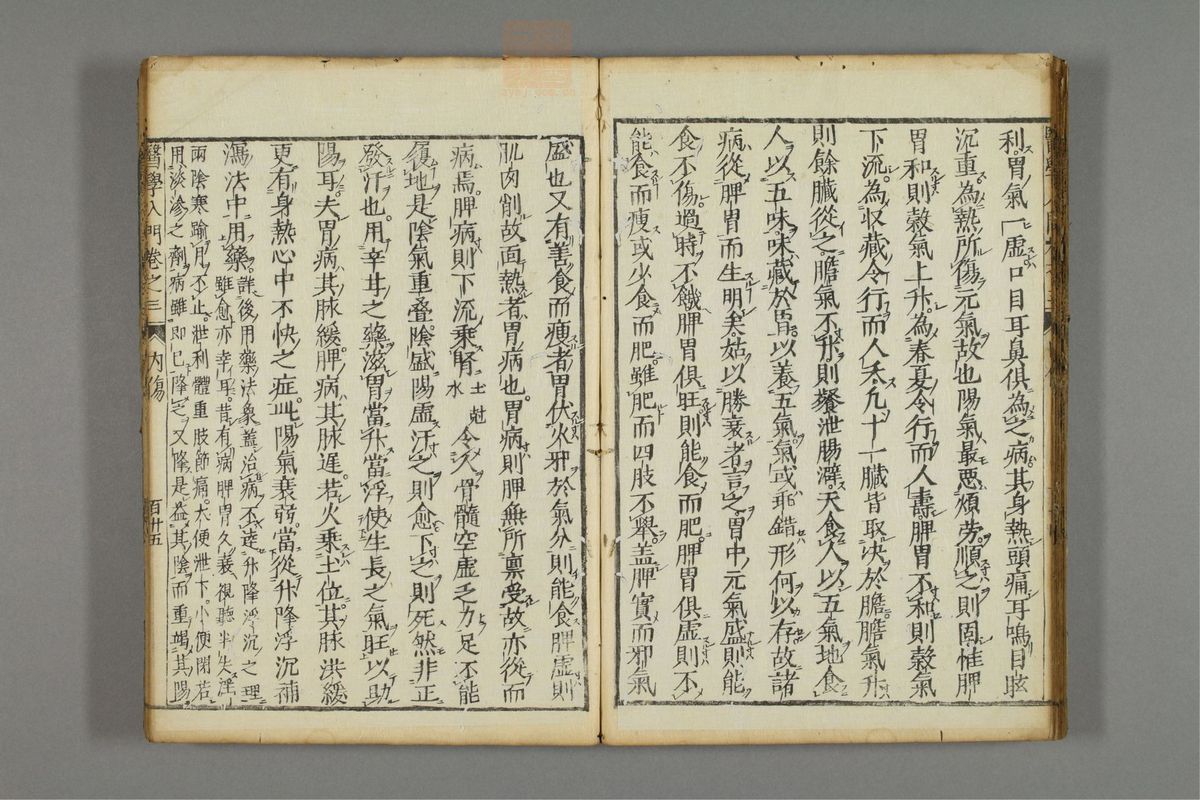 利胃氣一虛口目耳鼻俱為之病其身熱頭痛耳鳴目眩
沉重為熱所傷元氣故也陽氣最惡煩勞順之則固惟脾
胃和則穀氣上升為春夏令行而人壽脾胃不和則穀氣
下流為収藏令行而人夭凡十一臟皆取决於膽膽氣升
則餘臟從之膽氣不升則飱泄腸澼天食人以五氣地食
人以五味味藏於胃以養五氣氣或乖錯形何以存故諸
病從脾胃而生明矣姑以勝衰者言之胃中元氣盛則能
食不傷過時不餓脾胃俱旺則能食而肥脾胃俱虛則不
能食而瘦或少食而肥雖肥而四肢不舉盖脾實而邪氣
盛也又有善食而瘦者胃伏火邪於氣分則能食脾虛則
肌肉削故面熱者胃病也胃病則脾無所禀受故亦從而
病焉脾病則下流乘腎土尅水令人骨髓空虛乏力足不能
履地是陰氣重叠陰盛陽虛汗之則愈下之則死然非正
發汗也用辛甘之藥滋胃當升當浮使生長之氣旺以助
陽耳夫胃病其脉緩脾病其脉遲若火乘土位其脉洪緩
更有身熱心中不快之症此陽氣衰弱當從升降浮沉補
瀉法中用藥詳後用藥法象蓋治病不逹升降浮沉之理
雖愈亦幸耳昔有病脾胃久衰視聽半失淫
兩陰寒踰月不止泄利體重肢節痛大便泄下小便閉若
用淡滲之劑病雖即已降之又降是益其陰而重竭其陽
醫學入門卷之三
內傷
百廿五